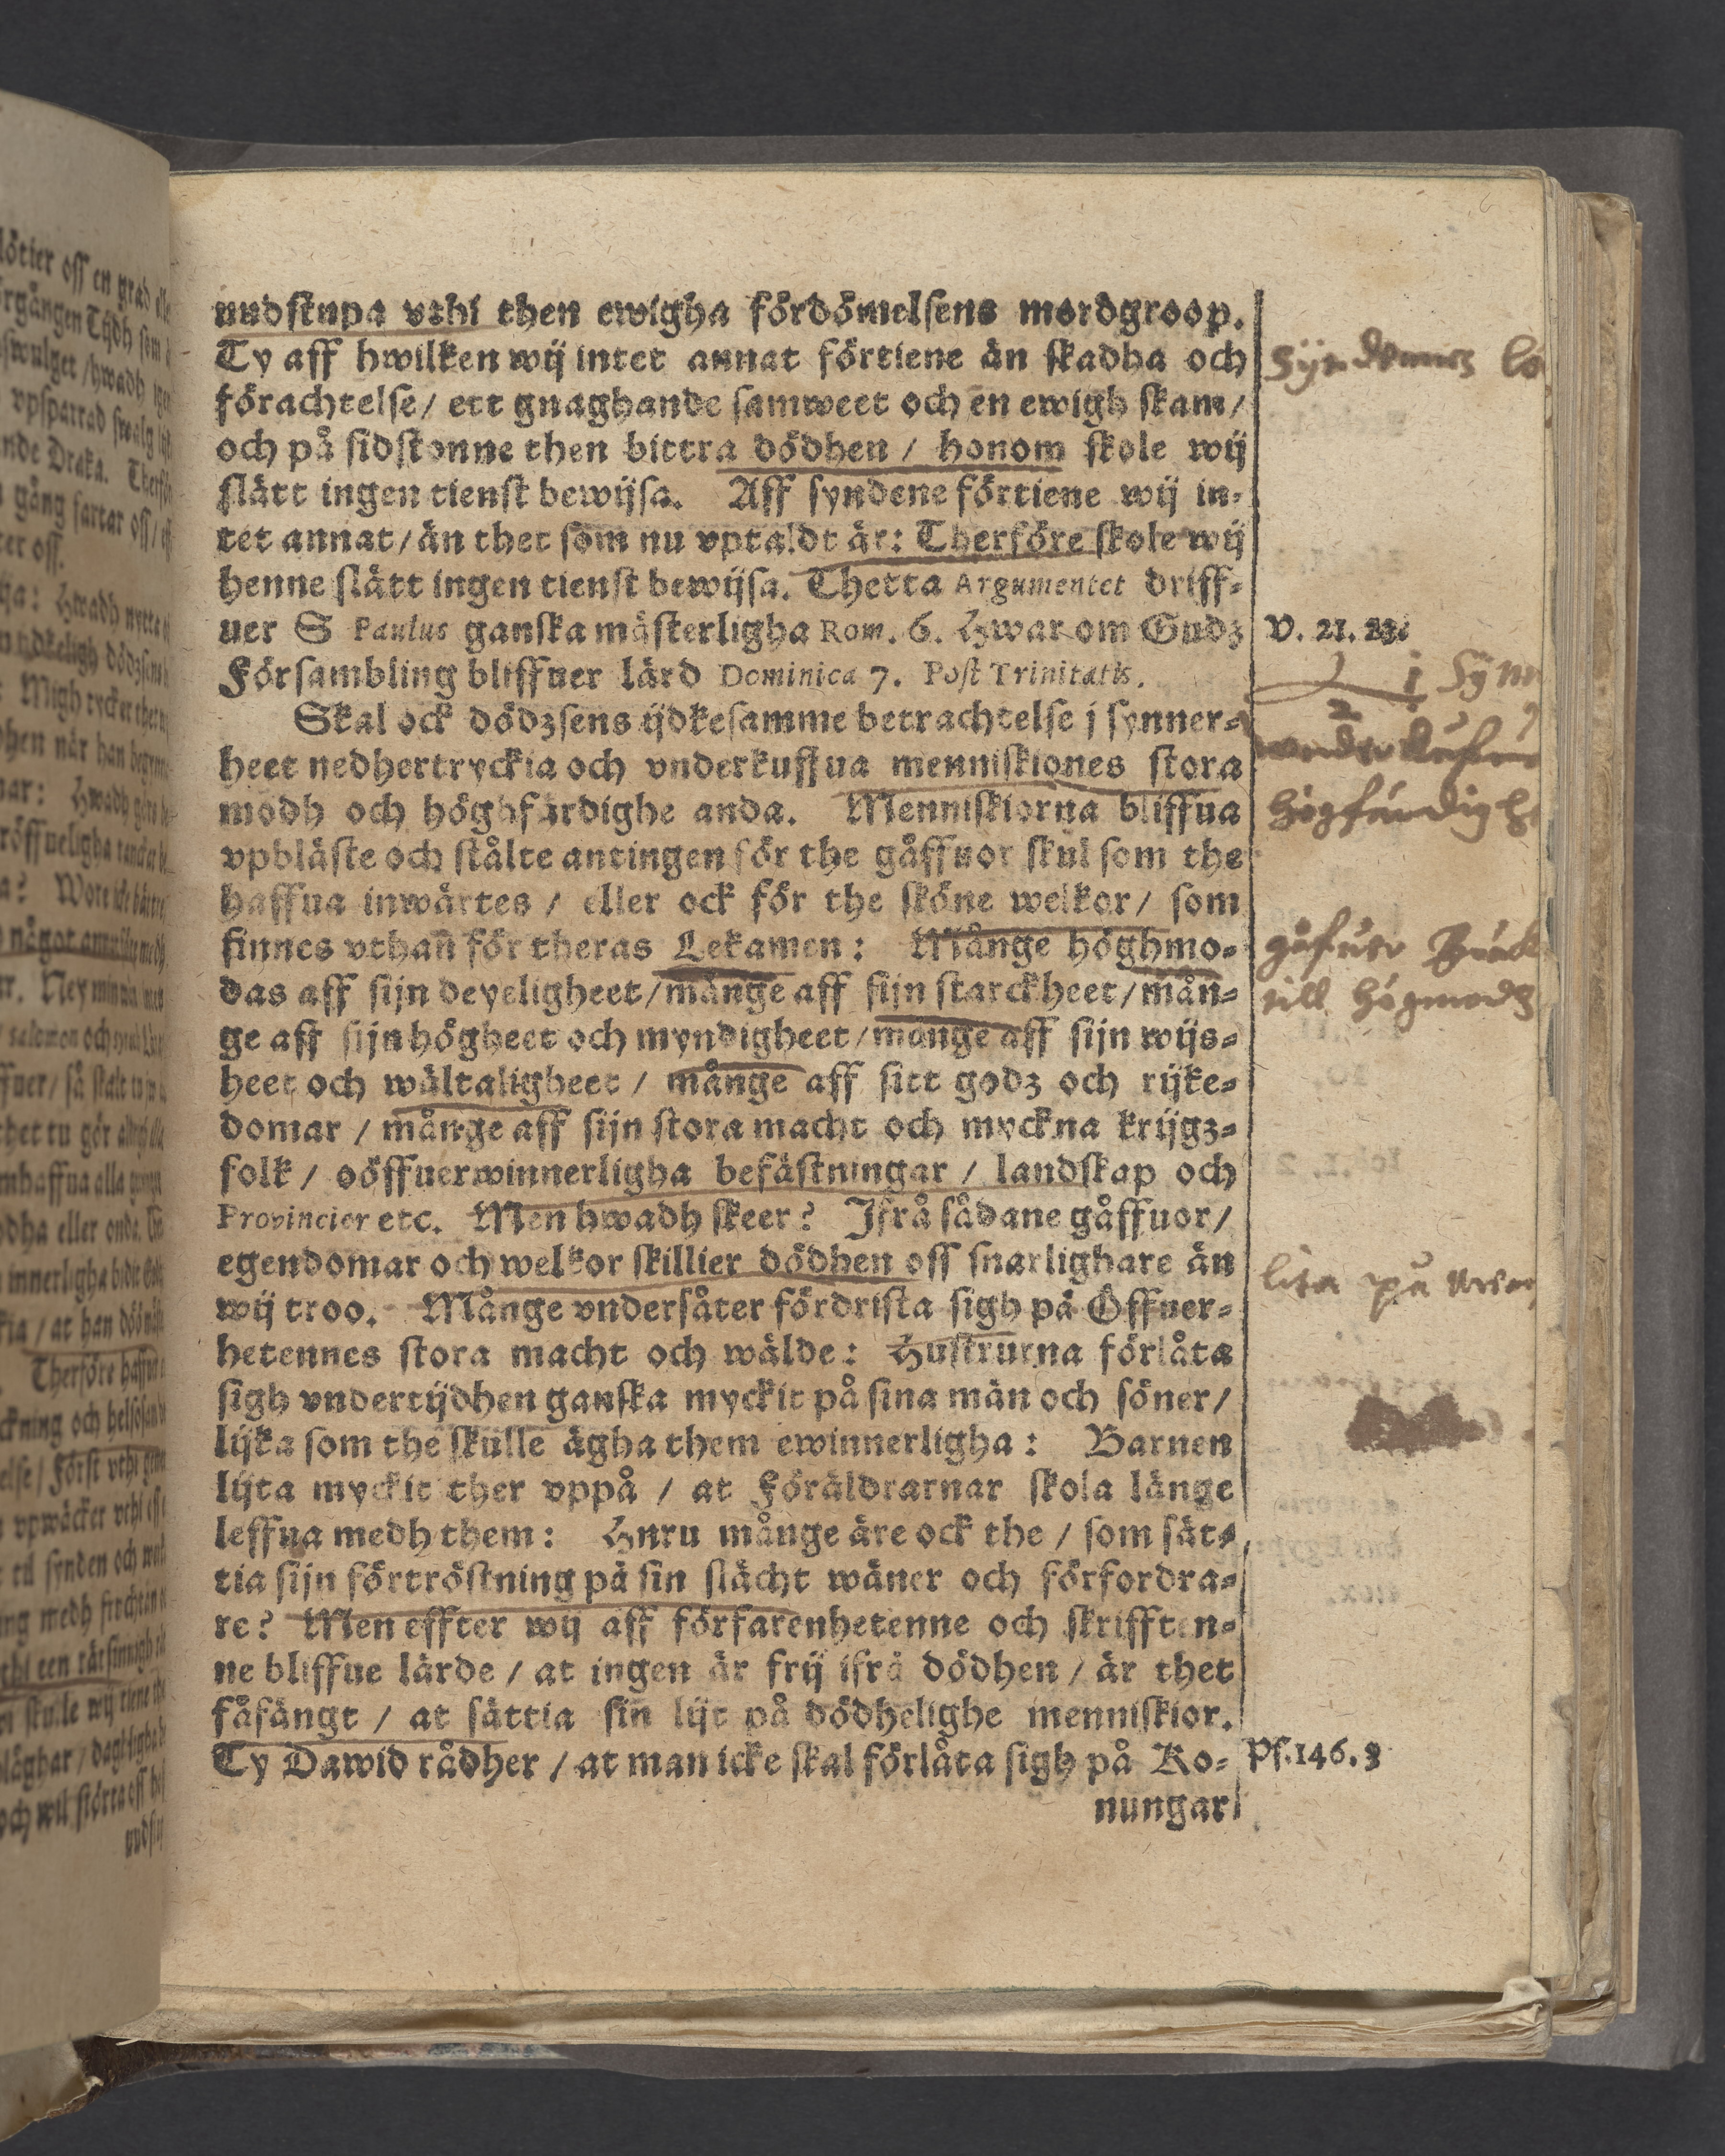 nudstupa vthi then ewigha fördömelsens mordgroop.
Ty aff hwilken wij intet annat förtiene än skadha och
förachtelse/ ett gnaghande samweet och en ewigh skam/
och på sidstonne then bittra dödhen / honom skole wij
slätt ingen tienst bewijsa. Aff syndene förtiene wij in-
tet annat/än thet som nu vptaldt är: Therföre skole wij
henne slätt ingen tienst bewijsa. Thetta Argumentet driff-
uer S Paulus ganska mästerligha Rom. 6. Hwar om Gudz
V. 21. 23.
Försambling bliffuer lärd Dominica 7. Post Trinitatis.
Skal ock dödzsens ijdkesamme betrachtelse j synner-
heet nedhertryckia och vnderkuffua menniskiones stora
modh och höghfärdighe anda. Menniskiorna bliffua
vpbläste och stålte antingen för the gåffuor skul som the
haffua inwärtes / eller ock för the sköne welkor/ som
finnes vthañ för theras Lekamen: Månge höghmo-
das aff sijn deyeligheet/månge aff sijn starckheet/mån-
ge aff sijn högheet och myndigheet/månge aff sijn wijs-
heet och wältaligheet / månge aff sitt godz och rijke-
domar / månge aff sijn stora macht och myckna krijgz-
folk / oöffuerwinnerligha befästningar / landskap och
Provincier etc. Men hwadh skeer? Jfrå sådane gåffuor/
egendomar och welkor skillier dödhen oss snarlighare än
wij troo. Månge vndersåter fördrista sigh på Öffuer-
hetennes stora macht och wälde: Hustrurna förlåta
sigh vndertijdhen ganska myckit på sina män och söner/
lijka som the skulle ägha them ewinnerligha: Barnen
lijta myckit ther vppå / at Föräldrarnar skola länge
leffua medh them: Huru månge äre ock the / som sät-
tia sijn förtröstning på sin slächt wäner och förfordra-
re? Men effter wij aff förfarenhetenne och skrifften-
ne bliffue lärde / at ingen är frij ifrå dödhen / är thet
fåfängt / at sättia sin lijt på dödhelighe menniskior.
Ty Dawid rådher / at man icke skal förlåta sigh på Ko-
Ps.146.3
nungar
Syndennes
i Syn
2
högfärdigh
gåfuor
till högmodz
lita på